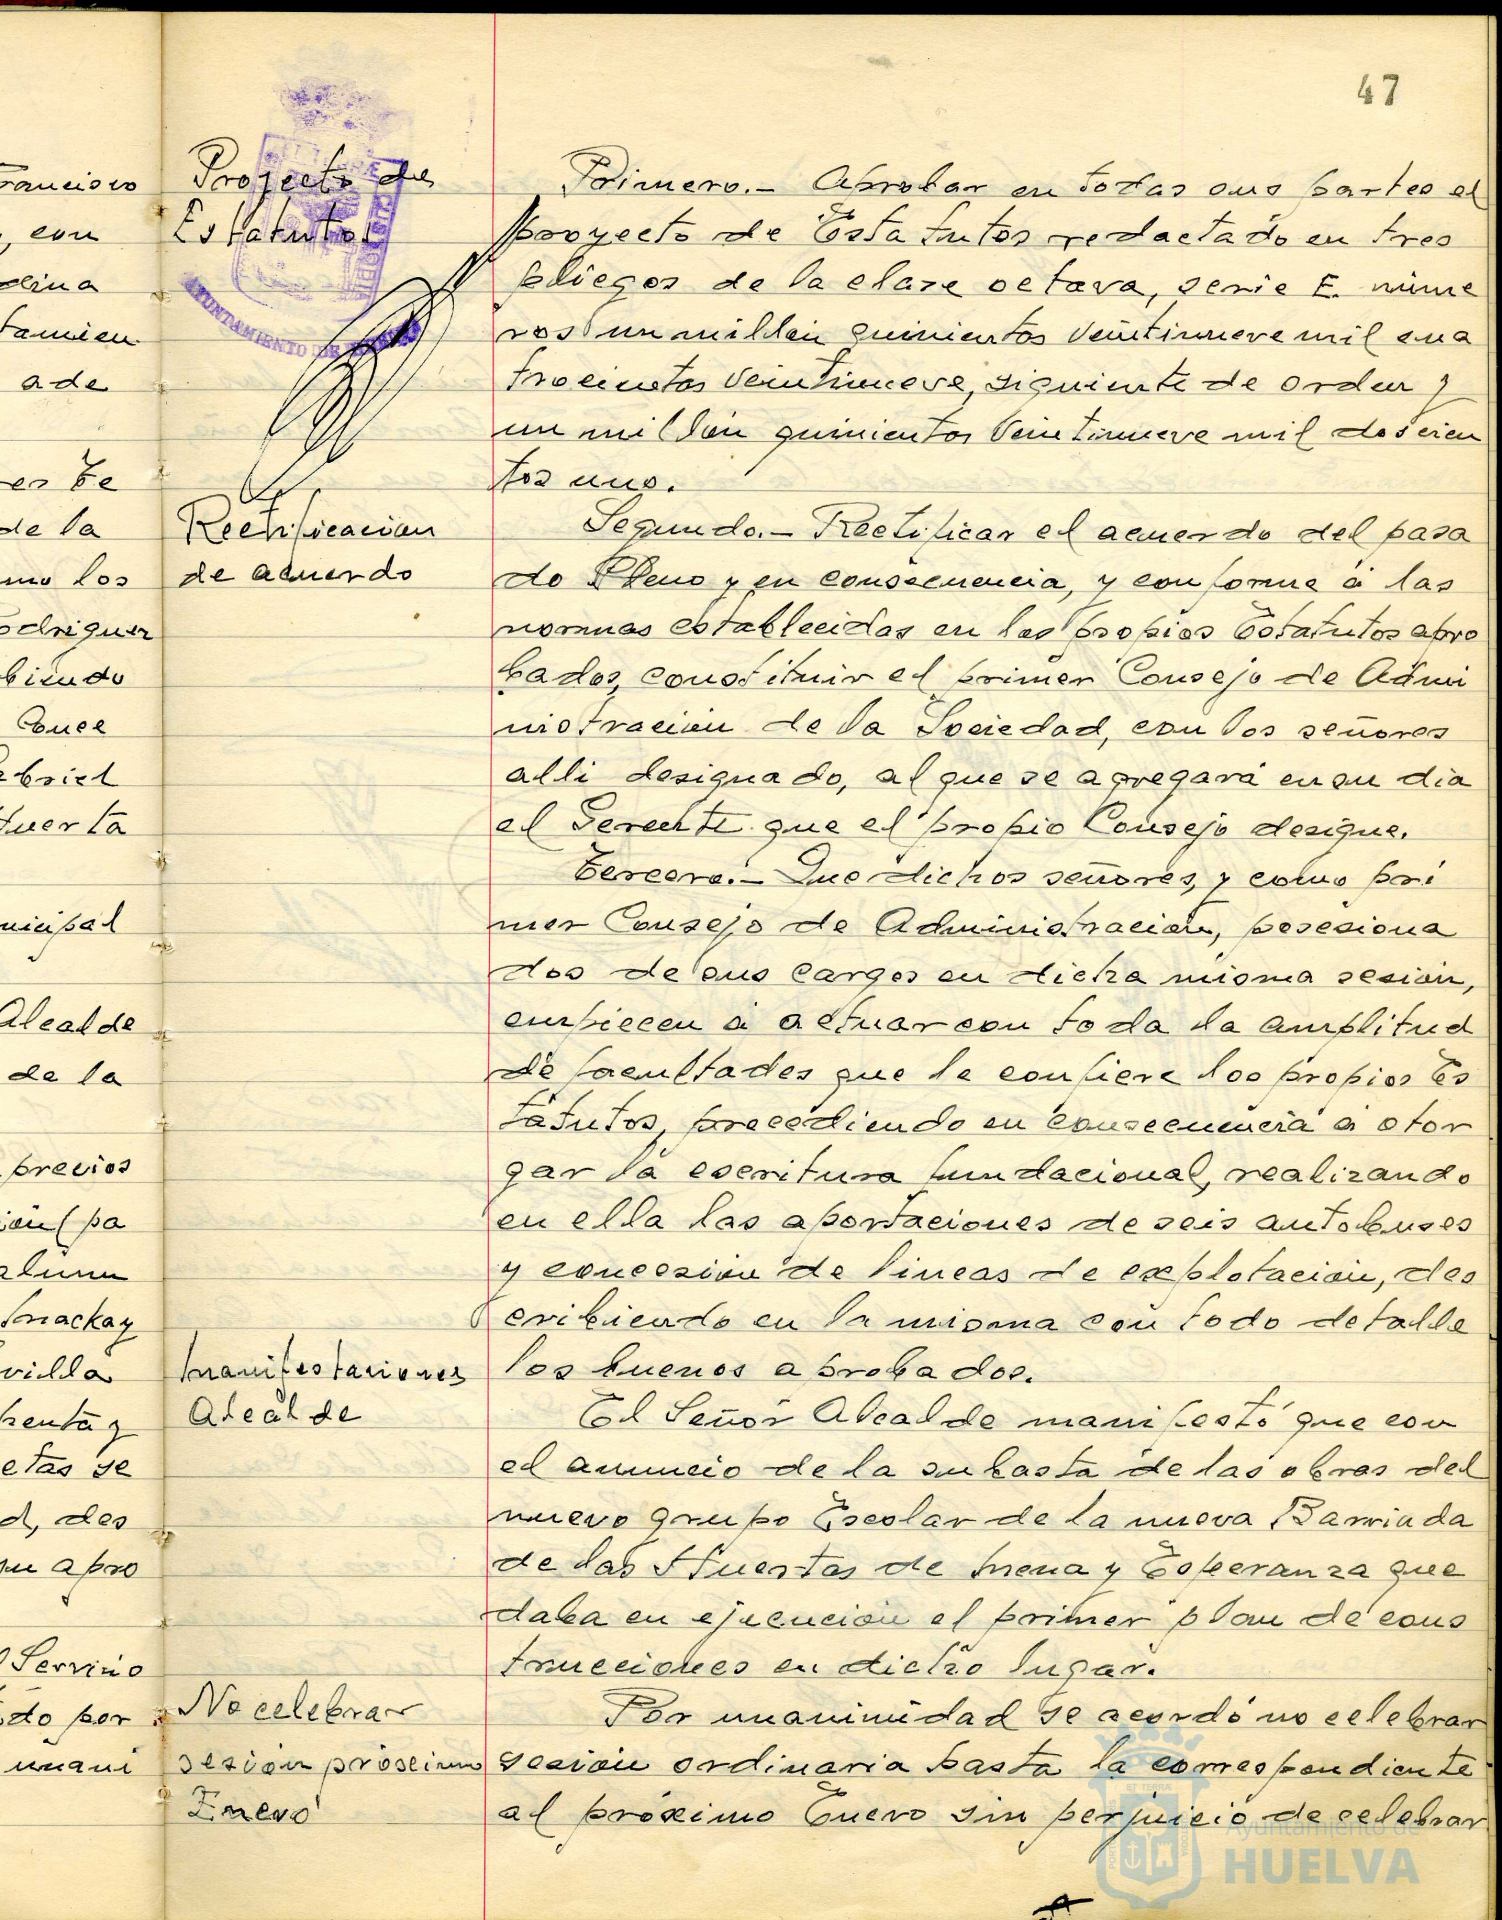 47
Francisco
, con
deina
tamien
ade
es Te
de la
mo los
odriguez
biendo
Conce
abriel
Huerta
nicipal
Alcalde
de la
previos
ion (pa
alum
Mackay
villa
henta y
etas se
d, des
su apro
l Servicio
ido por
unani
Proyecto de
Estatutos
AYUNTAMIENTO DE HUELVA
Rectificacion
de acuerdo
Manifestaciones
Alcalde
No celebrar
sesión próximo
Enero
Primero.- Aprobar en todas sus partes el
proyecto de Estatutos redactado en tres
pliegos de la clase octava, serie E. núme
ros un millón quinientos veintinueve mil cua
trocientos veintinueve, siguiente de orden y
un millón quinientos veintinueve mil doscien
tos uno.
Segundo.- Rectificar el acuerdo del pasa
do Pleno y en consecuencia, y conforme á las
normas establecidas en los propios Estatutos apro
bados, constituir el primer Consejo de Admi
nistración de la Sociedad, con los señores
alli designado, al que se agregará en su dia
el Gerente que el propio Consejo designe.
Tercero.- Que dichos señores, y como pri
mer Consejo de Administración, posesiona
dos de sus cargos en dicha misma sesión,
empiecen á actuar con toda la amplitud
de facultades que le confiere los propios Es
tatutos, procediendo en consecuencia á otor
gar la escritura fundacional, realizando
en ella las aportaciones de seis autobuses
y concesión de lineas de explotación, des
cribiendo en la misma con todo detalle
los buenos aprobados.
El Señor Alcalde manifestó que con
el anuncio de la subasta de las obras del
nuevo grupo Escolar de la nueva Barriada
de las Huertas de Mena y Esperanza que
daba en ejecución el primer plan de cons
trucciones en dicho lugar.
Por unanimidad se acordó no celebrar
sesión ordinaria hasta la correspondiente
al próximo Enero sin perjuicio de celebrar
Ayuntamiento de
HUELVA